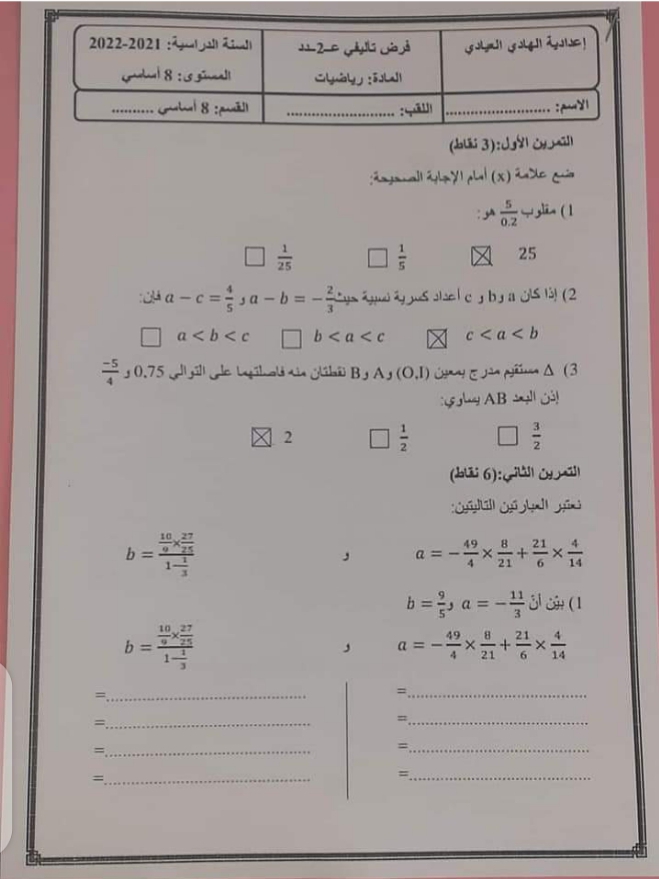 إعدادية الهادي العيادي
فرض تأليفي عـ2ـدد
السنة الدراسية: 2021-2022
المادة: رياضيات
المستوى: 8 أساسي
الاسم: ..........................
اللقب: ..........................
القسم: 8 أساسي ..........
التمرين الأول:(3 نقاط)
ضع علامة (x) أمام الإجابة الصحيحة:
1) مقلوب 5/0.2 هو:
25 ☒ 1/5 ☐ 1/25 ☐
2) إذا كان a وb و c أعداد كسرية نسبية حيث a − b = −2/3 و a − c = 4/5 فإن:
c < a < b ☒ b < a < c ☐ a < b < c ☐
3) Δ مستقيم مدرج بمعين (O,I) وA وB نقطتان منه فاصلتهما على التوالي 0.75 و −5/4
إذن البعد AB يساوي:
3/2 ☐ 1/2 ☐ 2 ☒
التمرين الثاني:(6 نقاط)
نعتبر العبارتين التاليتين:
a = −49/4 × 8/21 + 21/6 × 4/14 و b = (10/9 × 27/25)/(1 − 1/3)
1) بيّن أنّ a = −11/3 و b = 9/5
a = −49/4 × 8/21 + 21/6 × 4/14 و b = (10/9 × 27/25)/(1 − 1/3)
=.............................. =..............................
=.............................. =..............................
=.............................. =..............................
=.............................. =..............................